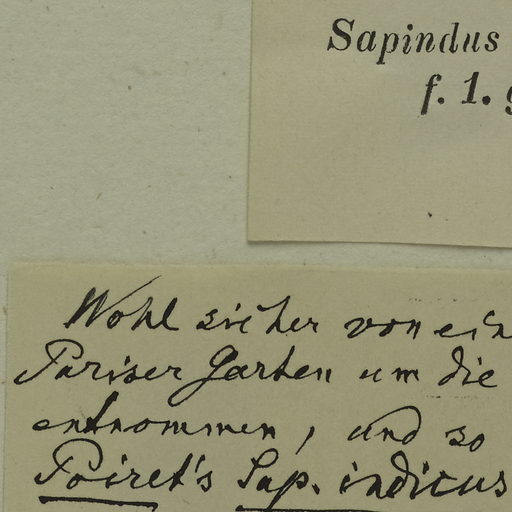 Sapindus
f. 1. g
Wohl sicher von ein
Pariser Garten um die
entnommen, und so
Poiret's Sap. indicus